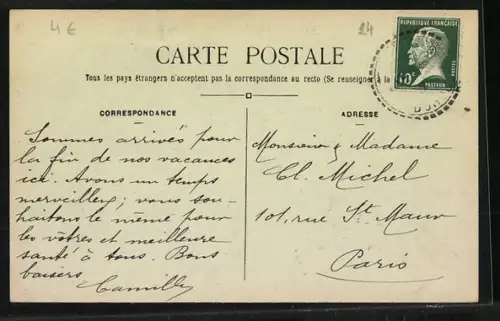 4€
24
CARTE POSTALE
Tous les pays étrangers n'acceptent pas la correspondance au recto (Se renseigner à la
CORRESPONDANCE
Sommes arrivés pour
la fin de nos vacances
ici. Avons un temps
merveilleux; vous sou-
haitons le même pour
les vôtres et meilleure
santé à tous. Bons
baisers
Camille
ADRESSE
Monsieur & Madame
Cl. Michel
101, rue St. Maur
Paris
REPUBLIQUE FRANÇAISE
10c
POSTES
PASTEUR